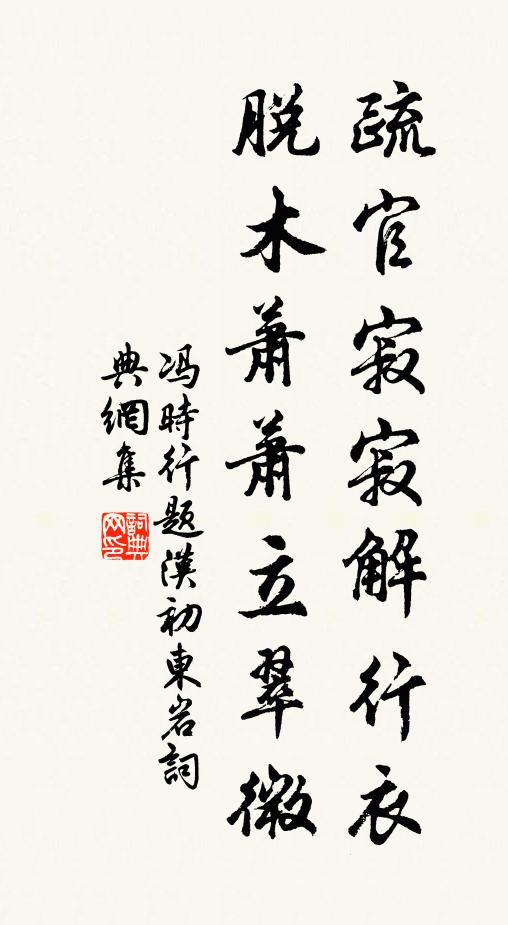 疏官寂寂解行衣
脱木蕭蕭立翠微
冯時行题漢初東岩詞
典網集
詞典
网印